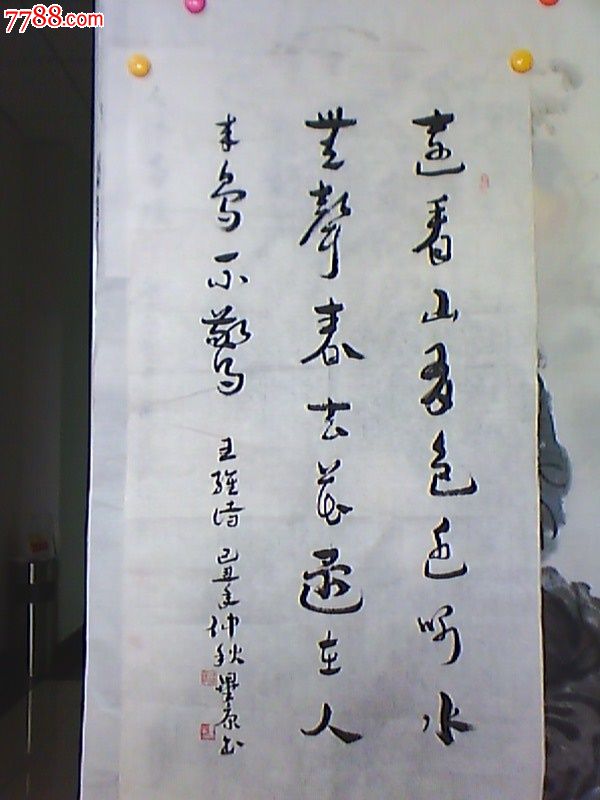 7788.com
远看山有色近听水
無聲春去花還在人
来鸟不驚 王維诗 己丑年仲秋 书